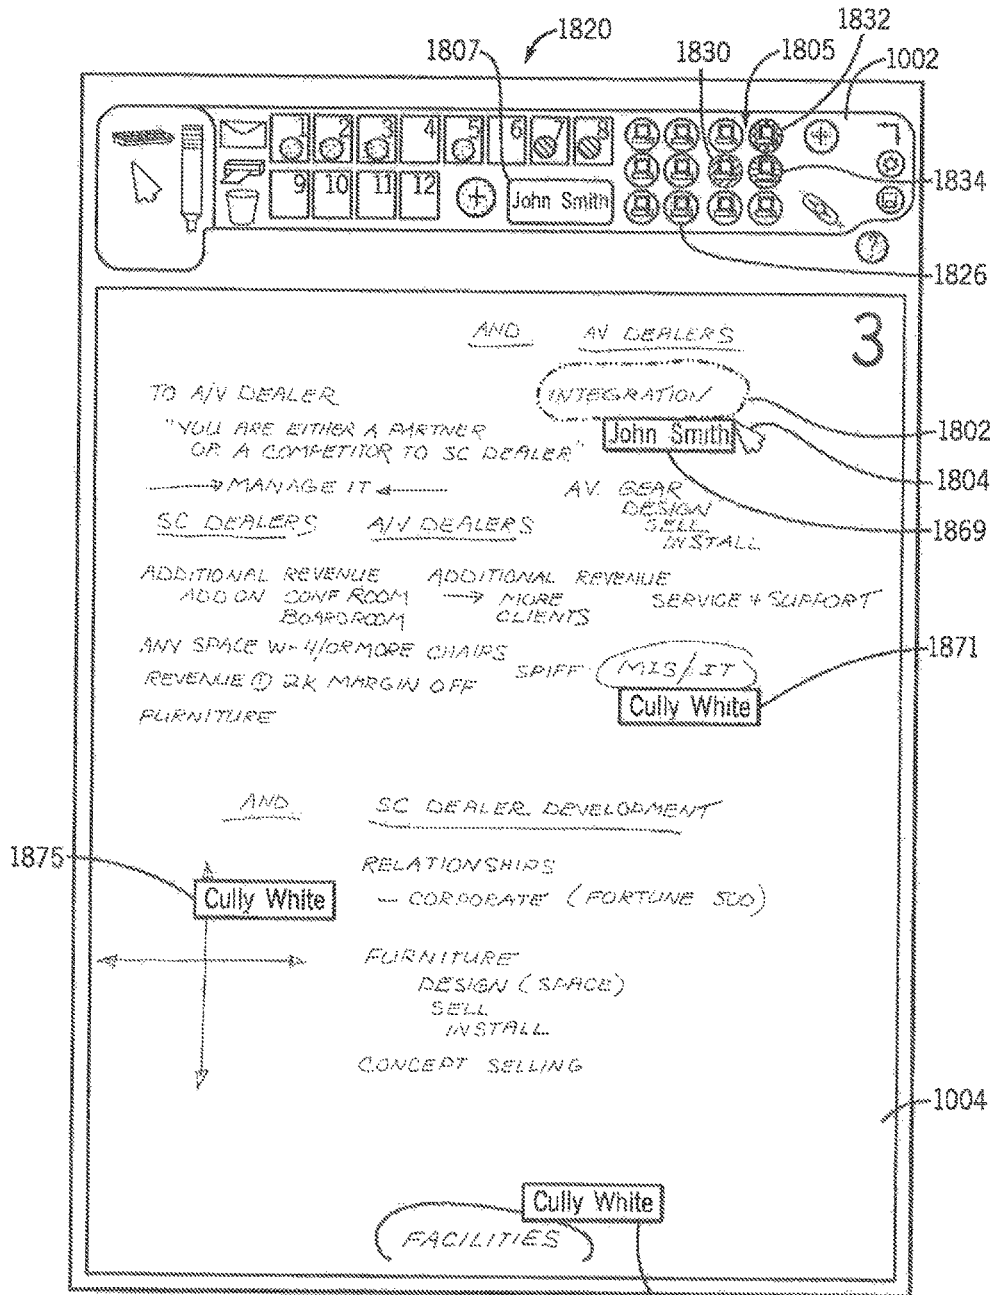 1820
1807
1830
1805
1832
1002
1 2 3 4 5 6 7 8
9 10 11 12
John Smith
1834
?
1826
3
AND AV DEALERS
TO A/V DEALER
INTEGRATION
1802
"YOU ARE EITHER A PARTNER
OR A COMPETITOR TO SC DEALER"
John Smith
1804
→ MANAGE IT ←
AV GEAR
DESIGN
SELL
INSTALL
1869
SC DEALERS A/V DEALERS
ADDITIONAL REVENUE
ADD ON CONF ROOM
BOARDROOM
→
ADDITIONAL REVENUE
MORE
CLIENTS
SERVICE + SUPPORT
ANY SPACE W- 4/OR MORE CHAIRS
REVENUE ① 2K MARGIN OFF
FURNITURE
SPIFF MIS/IT
1871
Cully White
AND SC DEALER DEVELOPMENT
1875
Cully White
RELATIONSHIPS
- CORPORATE (FORTUNE 500)
FURNITURE
DESIGN (SPACE)
SELL
INSTALL
CONCEPT SELLING
1004
Cully White
FACILITIES